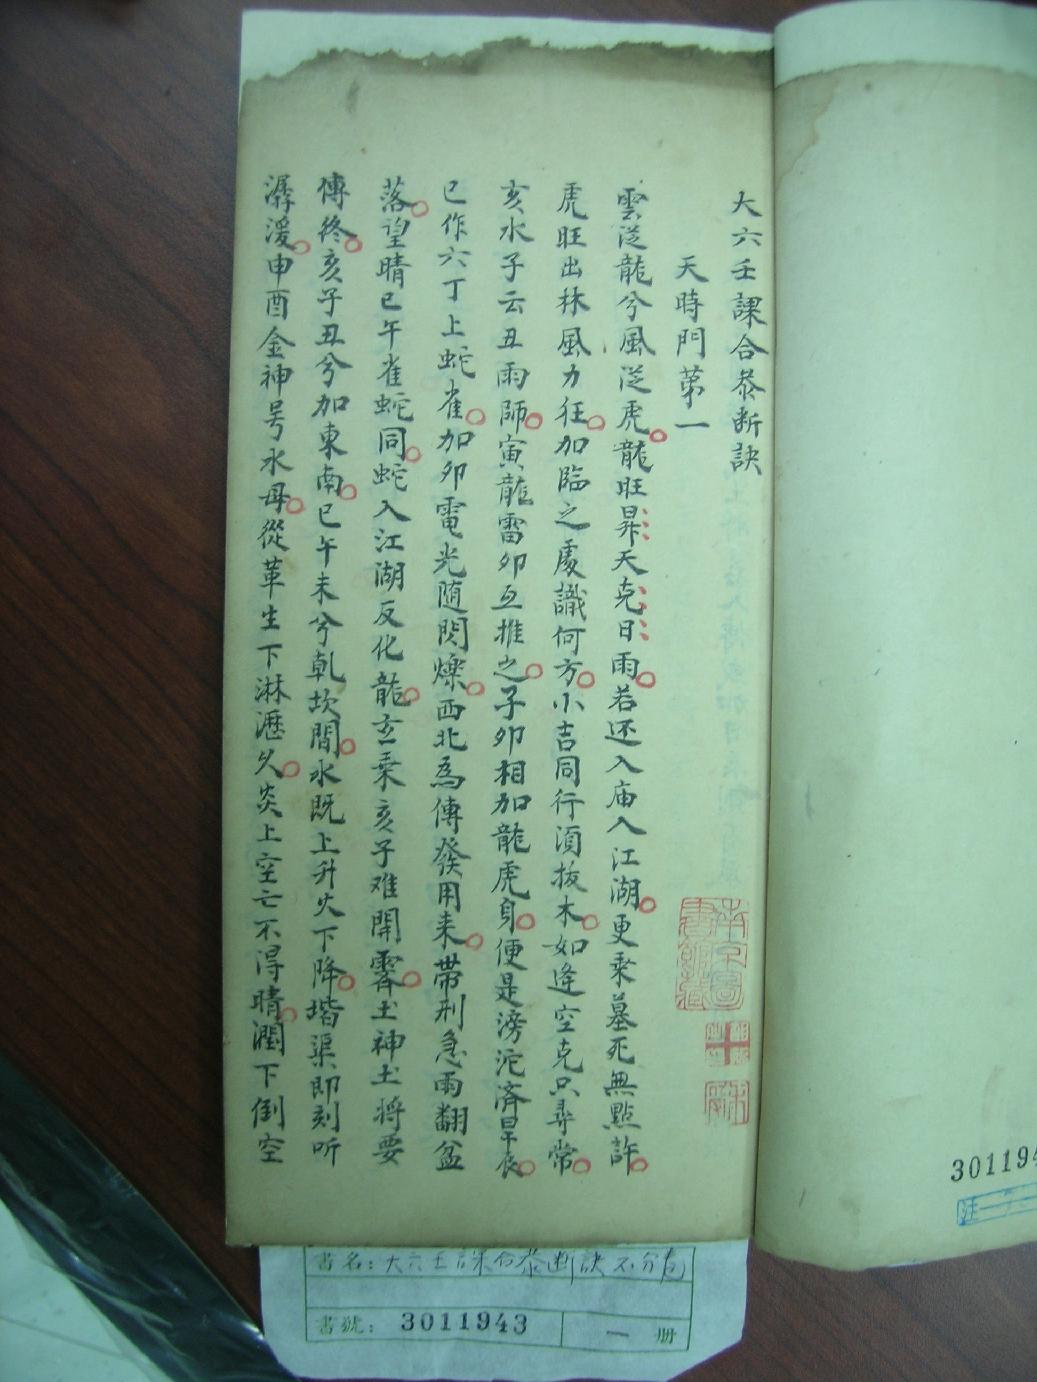 大六壬課合叅断訣
天時門第一
雲從龍兮風從虎龍旺昇天克日雨若还入庙入江湖更乗墓死無點許
虎旺出林風力狂加臨之處識何方小吉同行須拔木如逢空克只尋常
亥水子云丑雨師寅龍雷卯互推之子卯相加龍虎身便是滂沱济旱辰
巳作六丁上蛇雀加卯電光随閃爍西北為傳發用来带刑急雨翻盆
落望晴巳午雀蛇同蛇入江湖反化龍玄乗亥子难開霽土神土将要
傳終亥子丑兮加東南巳午未兮乾坎間水既上升火下降堦渠即刻听
潺湲申酉金神号水母從革生下淋瀝久炎上空亡不得晴潤下倒空
南京圖書館藏
3011943
书名:大六壬課合叅断訣不分卷
書號: 3011943 一 册